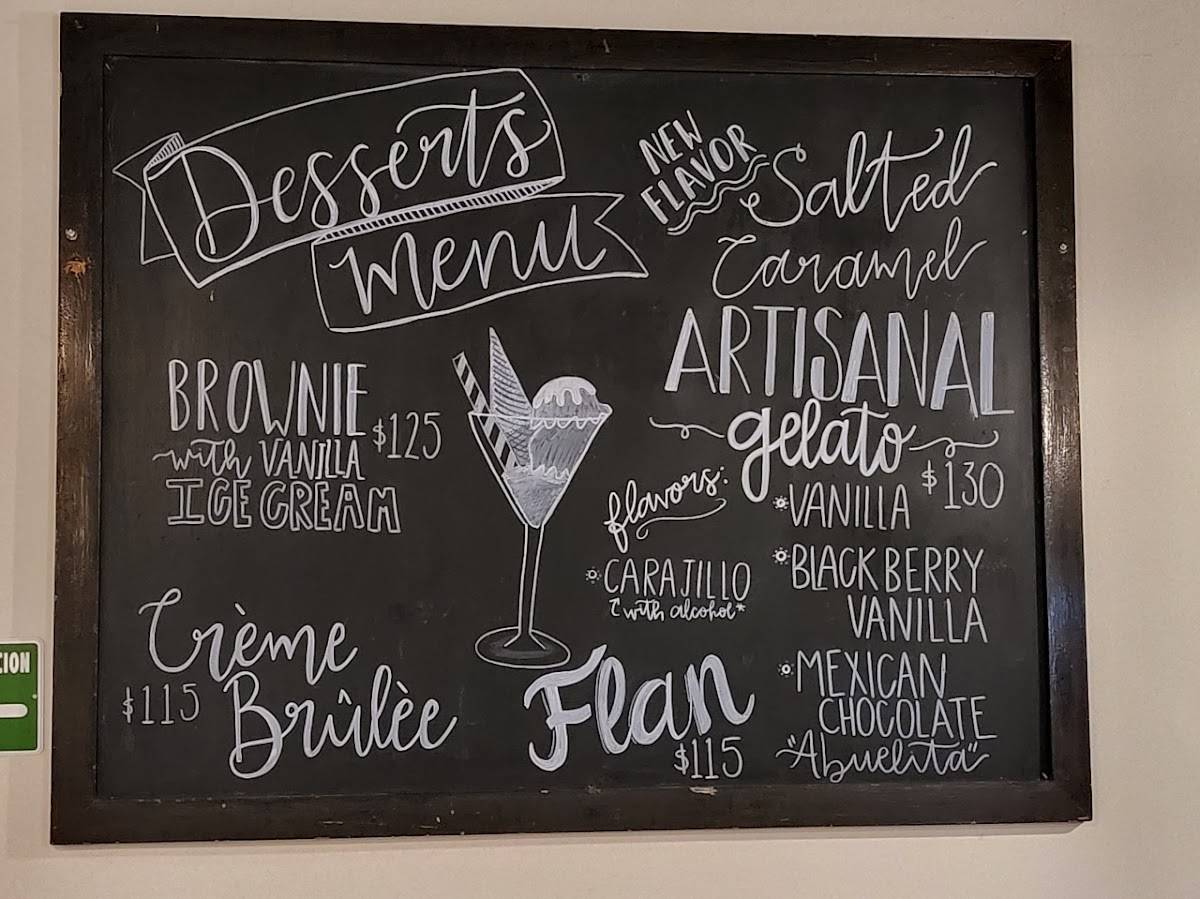 Desserts
Menu
BROWNIE
with VANILLA
ICE CREAM
$125
Crème
Brûlèe
$115
Flan
$115
NEW
FLAVOR
Salted
Caramel
ARTISANAL
gelato
$130
flavors:
*CARAJILLO
with alcohol*
*VANILLA
*BLACKBERRY
VANILLA
*MEXICAN
CHOCOLATE
"Abuelita"
CION